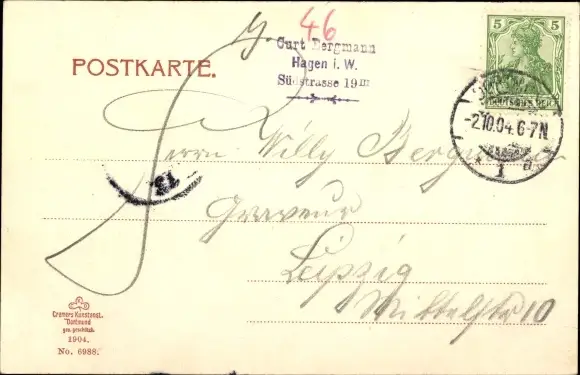 46
Curt Bergmann
Hagen i. W.
Südstrasse 19III
POSTKARTE.
5 5
DEUTSCHES REICH
-2.10.04.6-7N.
1 a
12
Herrn Willy Bergmann
Graveur
Leipzig
Mittelstr 10
Cramers Kunstanst.
Dortmund
ges. geschützt.
1904.
No. 6988.